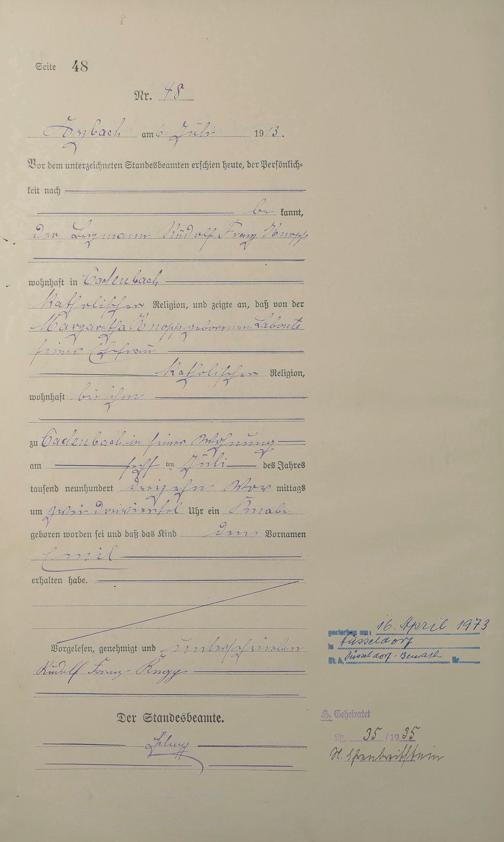 Seite 48
Nr. 48
am 6 Juli 1913.
Vor dem unterzeichneten Standesbeamten erschien heute, der Persönlich-
keit nach
be kannt,
der Rudolf Franz Knopp
wohnhaft in Cadenbach
katholischer Religion, und zeigte an, daß von der
Margaretha Knopp geborenen
seiner Ehefrau
katholischer Religion,
wohnhaft bei ihm
zu Cadenbach in seiner Wohnung
am Juli des Jahres
tausend neunhundert dreizehn Vor mittags
um zwei dreiviertel Uhr ein Knabe
geboren worden sei und daß das Kind den Vornamen
Emil
erhalten habe.
Vorgelesen, genehmigt und unterschrieben
Rudolf Franz
Der Standesbeamte.
gestorben am: 16. April 1973
in Düsseldorf
St. A. Düsseldorf-Benrath Nr.
Geheiratet
Nr. 35/1935